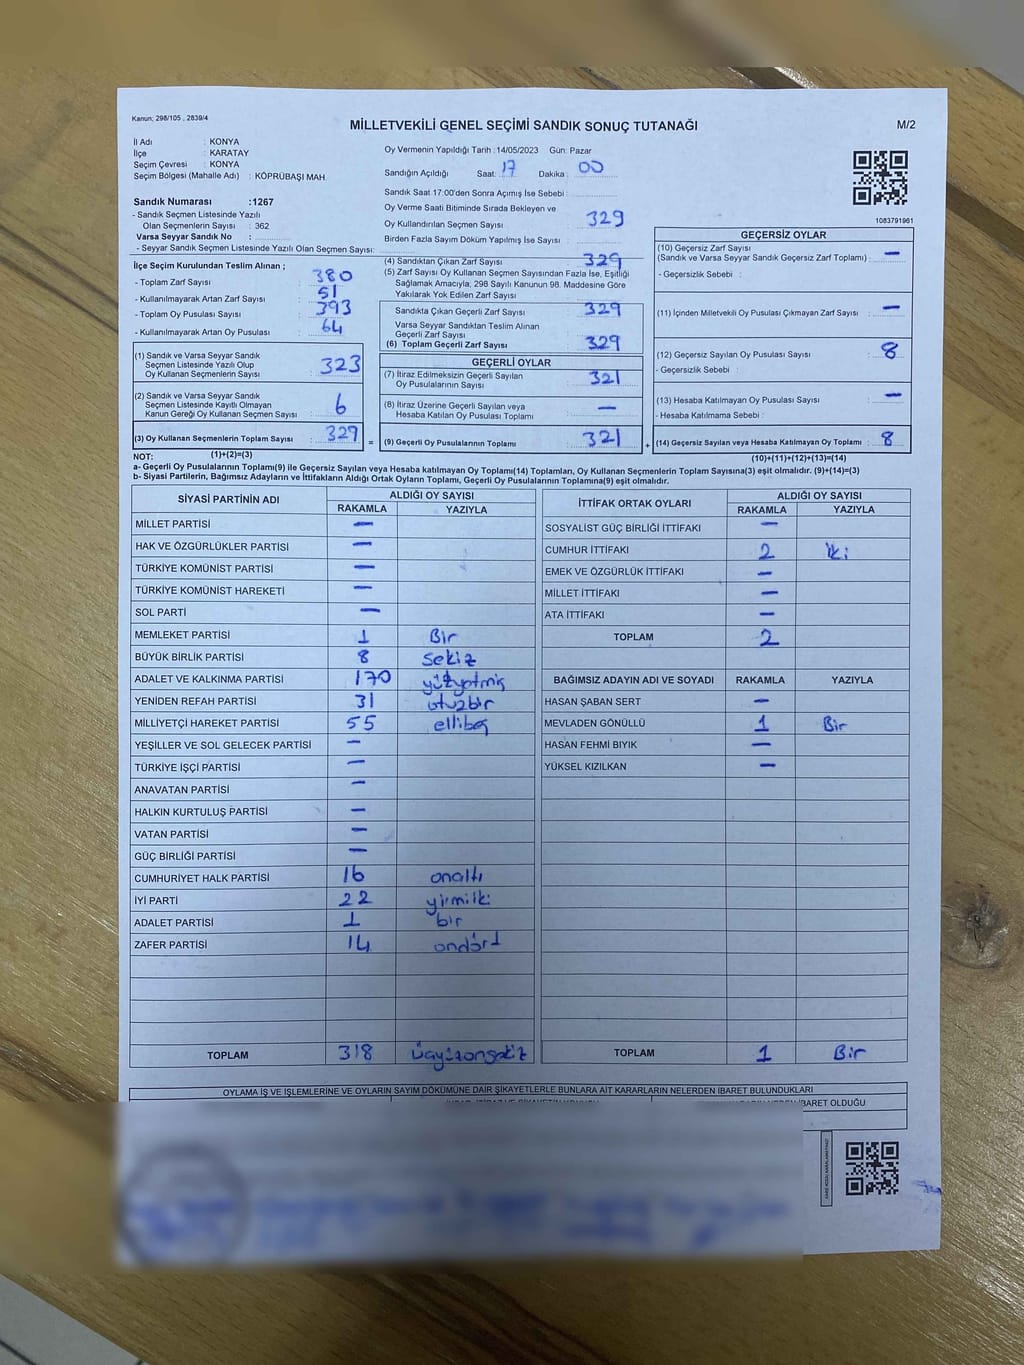 Kanun; 298/105 , 2839/4
MİLLETVEKİLİ GENEL SEÇİMİ SANDIK SONUÇ TUTANAĞI
M/2
İl Adı : KONYA
İlçe : KARATAY
Seçim Çevresi : KONYA
Seçim Bölgesi (Mahalle Adı) : KÖPRÜBAŞI MAH.
Sandık Numarası :1267
- Sandık Seçmen Listesinde Yazılı
Olan Seçmenlerin Sayısı : 362
Varsa Seyyar Sandık No :
- Seyyar Sandık Seçmen Listesinde Yazılı Olan Seçmen Sayısı:
Oy Vermenin Yapıldığı Tarih :14/05/2023 Gün: Pazar
Sandığın Açıldığı Saat: 17 Dakika : 00
Sandık Saat 17:00'den Sonra Açımış İse Sebebi :
Oy Verme Saati Bitiminde Sırada Bekleyen ve
Oy Kullandırılan Seçmen Sayısı : 329
Birden Fazla Sayım Döküm Yapılmış İse Sayısı :
1083791961
İlçe Seçim Kurulundan Teslim Alınan ;
- Toplam Zarf Sayısı : 380
- Kullanılmayarak Artan Zarf Sayısı : 51
- Toplam Oy Pusulası Sayısı : 393
- Kullanılmayarak Artan Oy Pusulası : 64
(1) Sandık ve Varsa Seyyar Sandık
Seçmen Listesinde Yazılı Olup
Oy Kullanan Seçmenlerin Sayısı : 323
(2) Sandık ve Varsa Seyyar Sandık
Seçmen Listesinde Kayıtlı Olmayan
Kanun Gereği Oy Kullanan Seçmen Sayısı : 6
(3) Oy Kullanan Seçmenlerin Toplam Sayısı : 329 =
(4) Sandıktan Çıkan Zarf Sayısı : 329
(5) Zarf Sayısı Oy Kullanan Seçmen Sayısından Fazla İse, Eşitliği
Sağlamak Amacıyla; 298 Sayılı Kanunun 98. Maddesine Göre
Yakılarak Yok Edilen Zarf Sayısı :
Sandıkta Çıkan Geçerli Zarf Sayısı : 329
Varsa Seyyar Sandıktan Teslim Alınan
Geçerli Zarf Sayısı :
(6) Toplam Geçerli Zarf Sayısı : 329
GEÇERLİ OYLAR
(7) İtiraz Edilmeksizin Geçerli Sayılan
Oy Pusulalarının Sayısı : 321
(8) İtiraz Üzerine Geçerli Sayılan veya
Hesaba Katılan Oy Pusulası Toplamı : —
(9) Geçerli Oy Pusulalarının Toplamı : 321 +
GEÇERSİZ OYLAR
(10) Geçersiz Zarf Sayısı
(Sandık ve Varsa Seyyar Sandık Geçersiz Zarf Toplamı) : —
- Geçersizlik Sebebi :
(11) İçinden Milletvekili Oy Pusulası Çıkmayan Zarf Sayısı : —
(12) Geçersiz Sayılan Oy Pusulası Sayısı : 8
- Geçersizlik Sebebi :
(13) Hesaba Katılmayan Oy Pusulası Sayısı : —
- Hesaba Katılmama Sebebi :
(14) Geçersiz Sayılan veya Hesaba Katılmayan Oy Toplamı : 8
NOT: (1)+(2)=(3) (10)+(11)+(12)+(13)=(14)
a- Geçerli Oy Pusulalarının Toplamı(9) ile Geçersiz Sayılan veya Hesaba katılmayan Oy Toplamı(14) Toplamları, Oy Kullanan Seçmenlerin Toplam Sayısına(3) eşit olmalıdır. (9)+(14)=(3)
b- Siyasi Partilerin, Bağımsız Adayların ve İttifakların Aldığı Ortak Oyların Toplamı, Geçerli Oy Pusulalarının Toplamına(9) eşit olmalıdır.
SİYASİ PARTİNİN ADI ALDIĞI OY SAYISI
RAKAMLA YAZIYLA
MİLLET PARTİSİ —
HAK VE ÖZGÜRLÜKLER PARTİSİ —
TÜRKİYE KOMÜNİST PARTİSİ —
TÜRKİYE KOMÜNİST HAREKETİ —
SOL PARTİ —
MEMLEKET PARTİSİ 1 Bir
BÜYÜK BİRLİK PARTİSİ 8 sekiz
ADALET VE KALKINMA PARTİSİ 170 yüzyetmiş
YENİDEN REFAH PARTİSİ 31 otuzbir
MİLLİYETÇİ HAREKET PARTİSİ 55 ellibeş
YEŞİLLER VE SOL GELECEK PARTİSİ —
TÜRKİYE İŞÇİ PARTİSİ —
ANAVATAN PARTİSİ —
HALKIN KURTULUŞ PARTİSİ —
VATAN PARTİSİ —
GÜÇ BİRLİĞİ PARTİSİ —
CUMHURİYET HALK PARTİSİ 16 onaltı
İYİ PARTİ 22 yirmiiki
ADALET PARTİSİ 1 bir
ZAFER PARTİSİ 14 ondört
TOPLAM 318 üçyüzonsekiz
İTTİFAK ORTAK OYLARI ALDIĞI OY SAYISI
RAKAMLA YAZIYLA
SOSYALİST GÜÇ BİRLİĞİ İTTİFAKI —
CUMHUR İTTİFAKI 2 iki
EMEK VE ÖZGÜRLÜK İTTİFAKI —
MİLLET İTTİFAKI —
ATA İTTİFAKI —
TOPLAM 2
BAĞIMSIZ ADAYIN ADI VE SOYADI RAKAMLA YAZIYLA
HASAN ŞABAN SERT —
MEVLADEN GÖNÜLLÜ 1 Bir
HASAN FEHMI BIYIK —
YÜKSEL KIZILKAN —
TOPLAM 1 Bir
OYLAMA İŞ VE İŞLEMLERİNE VE OYLARIN SAYIM DÖKÜMÜNE DAİR ŞİKAYETLERLE BUNLARA AİT KARARLARIN NELERDEN İBARET BULUNDUKLARI
İBARET OLDUĞU